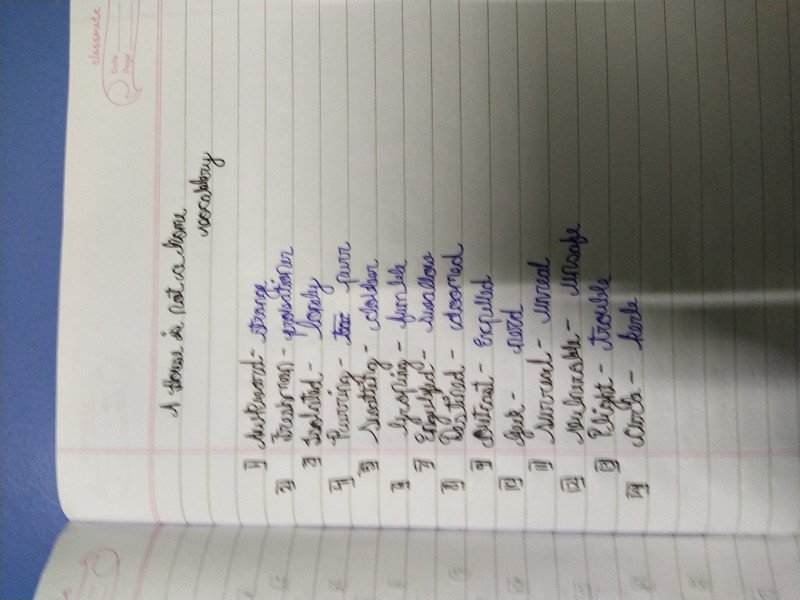 classmate
Date
Page
A House is not a home
vocablory
1] Awkward - strange
2] Freshman - probationer
3] Isolated - lonely
4] Purring - purr
5] Seathing -
6] Groping - fumble
7] Engulfed - swallow
8] Destined - doomed
9] Outcast - Expelled
10] Geek - nerd
11] Surreal - unreal
12] Vulnerable - unsafe
13] Plight - trouble
14] Dork - kerk